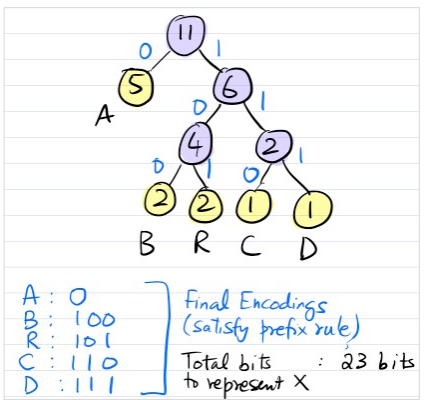 11
0 1
5 6
A 0 1
4 2
0 1 0 1
2 2 1 1
B R C D
A : 0
B : 100
R : 101
C : 110
D : 111
Final Encodings
(satisfy prefix rule)
Total bits : 23 bits
to represent X